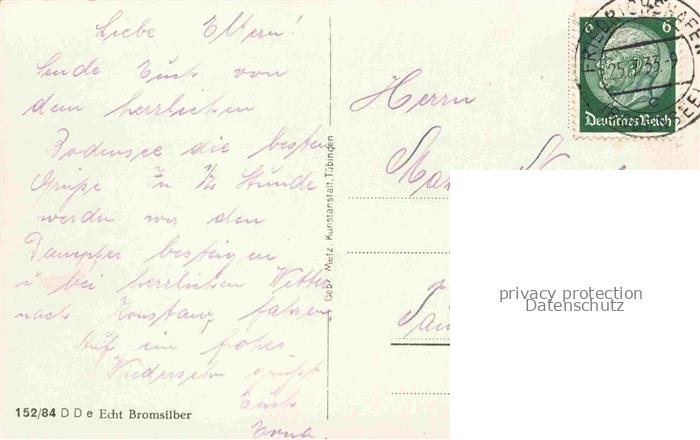 Liebe Eltern!
Sende Euch von
dem herrlichen
Bodensee die besten
Grüße. In ½ Stunde
werden wir den
Dampfer besteigen
u bei herrlichen Wetter
nach Konstanz fahren
Auf ein frohes
Wiedersehn grüßt
Euch
Erna.
152/84 D D e Echt Bromsilber
Gebr. Metz, Kunstanstalt, Tübingen
Herrn
6 6
Deutsches Reich
FRIEDRICHSHAFEN
privacy protection
Datenschutz